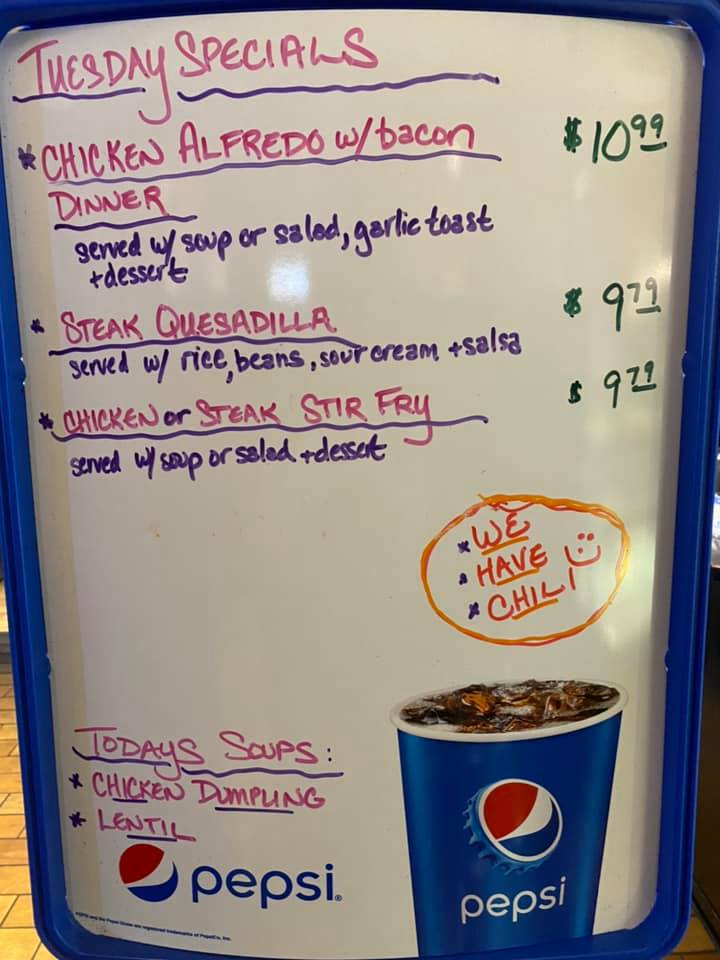 TUESDAY SPECIALS
* CHICKEN ALFREDO w/bacon $10 99
DINNER
served w/ soup or salad, garlic toast
+dessert
* STEAK QUESADILLA $ 9 79
served w/ rice, beans, sour cream +salsa
* CHICKEN or STEAK STIR FRY $ 9 79
served w/ soup or salad +dessert
* WE
* HAVE
* CHILI
TODAYS SOUPS:
* CHICKEN DUMPLING
* LENTIL
pepsi
pepsi